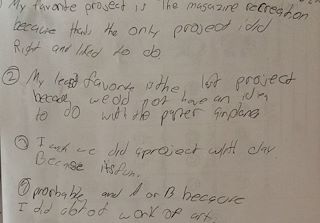 My favorite project is The magazine recreation
because thats the only project i did
Right and liked to do
② My least favorite is the last project
because we did not have an idea
to do with the paper airplanes
I wish we did a project with clay
Because its fun.
probable and A or B because
I did alot of work of art.